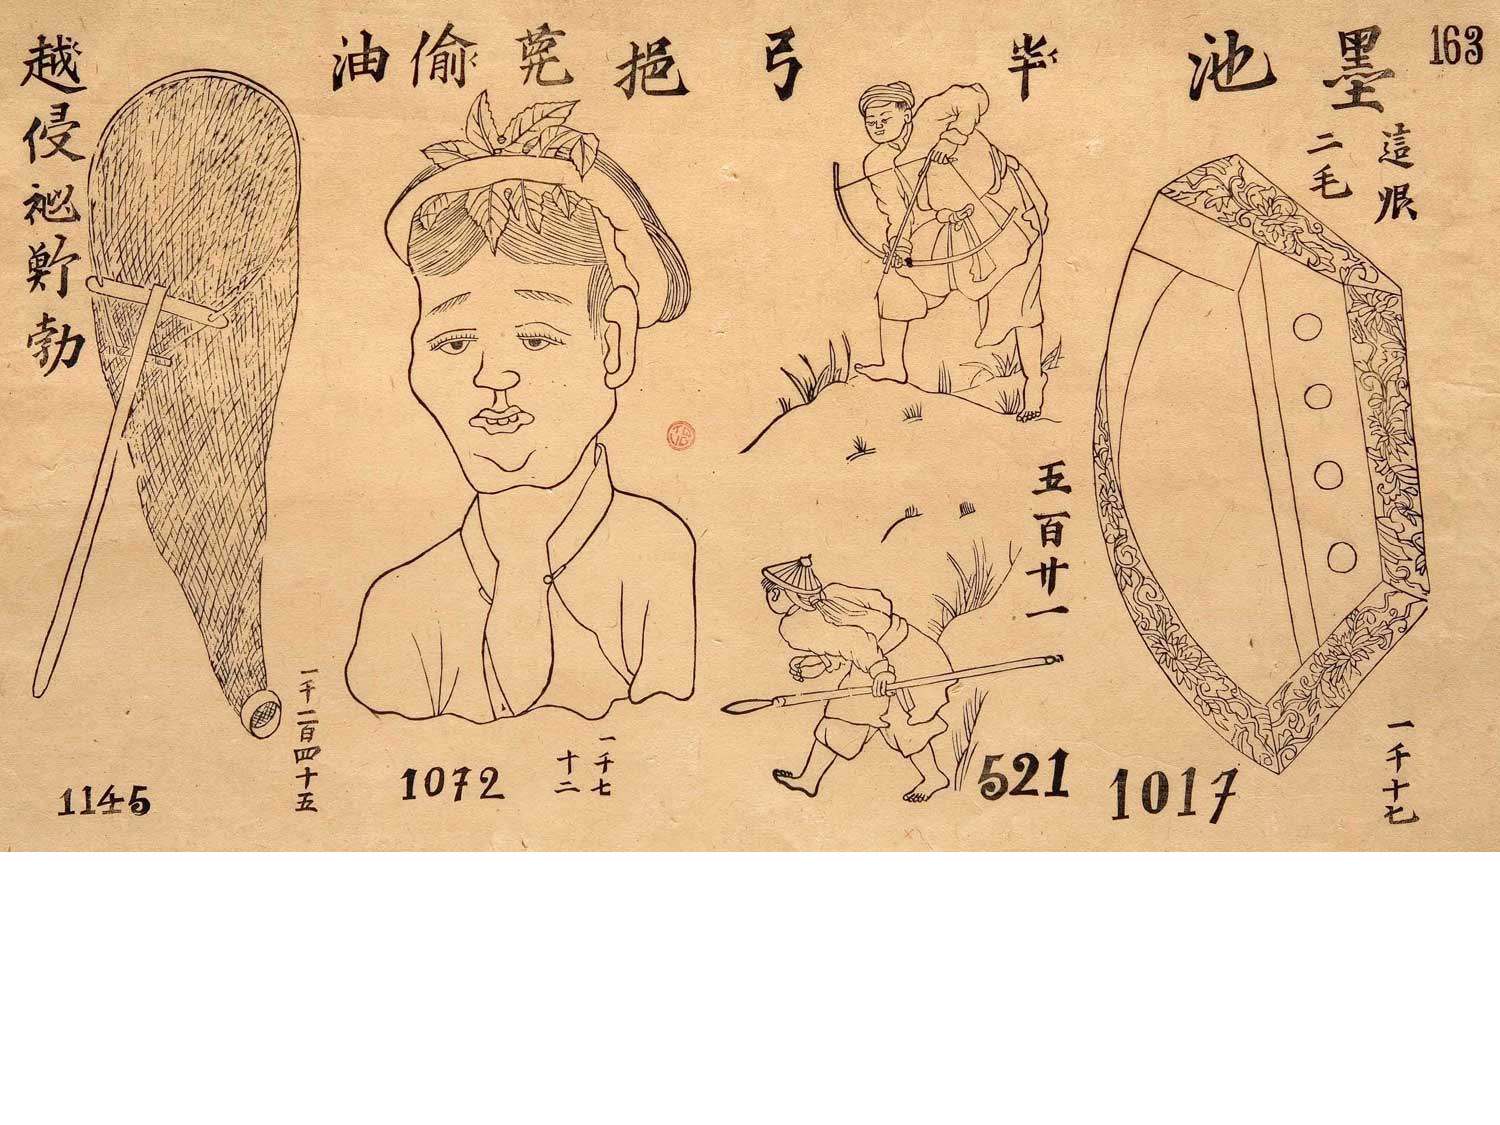 163
墨池
這
二毛
一千十七
1017
弓
五百廿一
521
挹 莞 偷 油
一千七
十二
1072
越侵
勃
一千一百四十五
1145